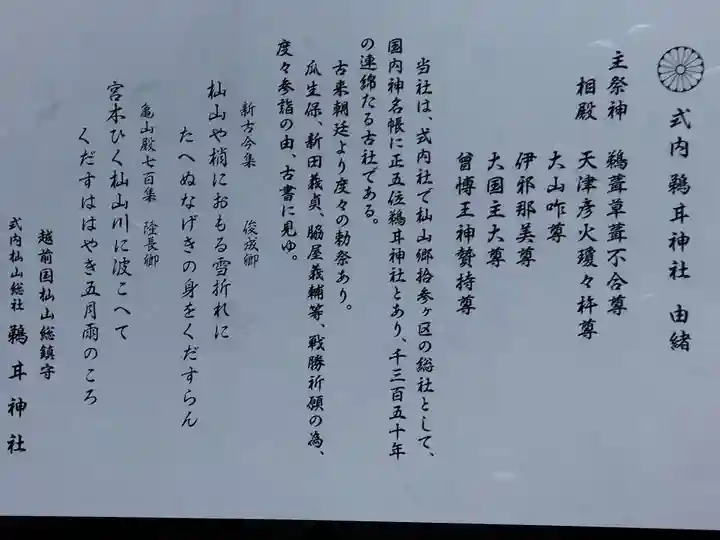 式内 鵜甘神社 由緒
主祭神 鵜葺草葺不合尊
相殿 天津彦火瓊々杵尊
大山咋尊
伊邪那美尊
大国主大尊
曾博王神贊持尊
当社は、式内社で杣山郷拾参ヶ区の総社として、
国内神名帳に正五位鵜耳神社とあり、千三百五十年
の連綿たる古社である。
古来朝廷より度々の勅祭あり。
瓜生保、新田義貞、脇屋義輔等、戦勝祈願の為、
度々参詣の由、古書に見ゆ。
新古今集 俊成卿
杣山や梢におもる雪折れに
たへぬなげきの身をくだすらん
亀山殿七百集 隆長卿
宮木ひく杣山川に波こへて
くだすははやき五月雨のころ
越前国杣山総鎮守
式内杣山総社 鵜耳神社